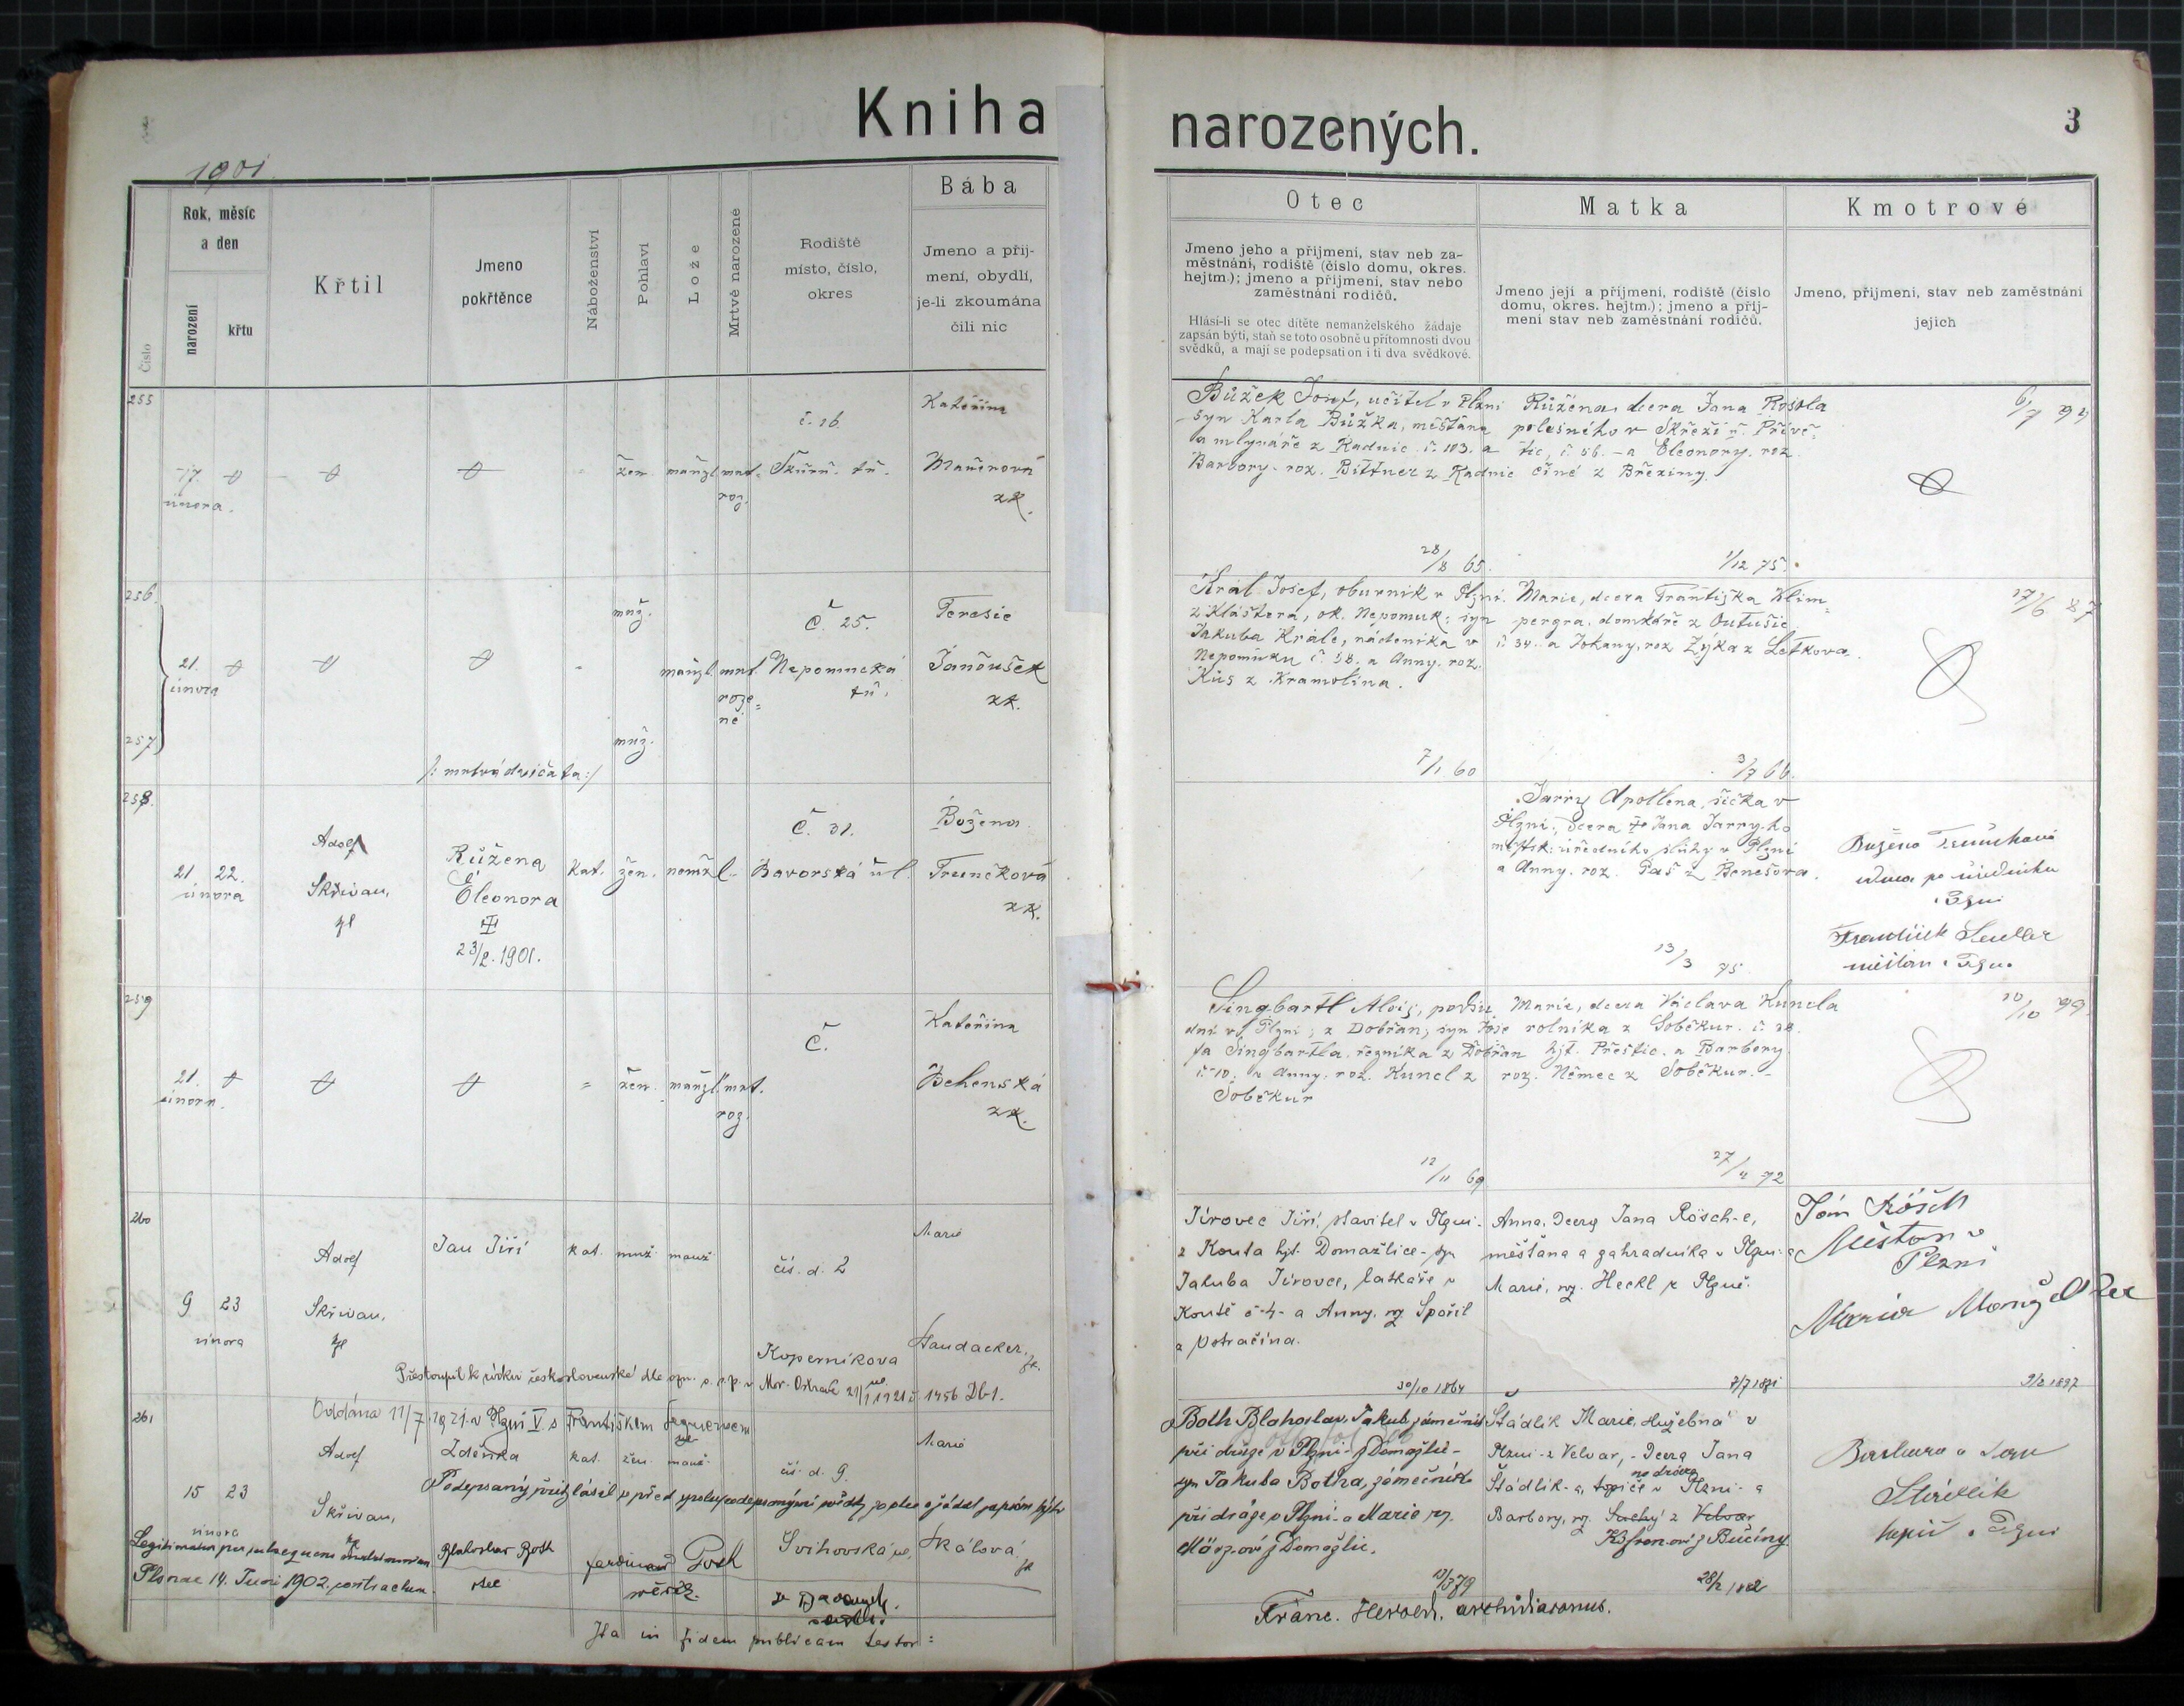 Kniha narozených.
3
1901.
Číslo
Rok, měsíc
a den
narození
křtu
Křtil
Jmeno
pokřtěnce
Náboženství
Pohlaví
Lože
Mrtvě narozené
Rodiště
místo, číslo,
okres
Bába
Jmeno a příj-
mení, obydlí,
je-li zkoumána
čili nic
Otec
Jmeno jeho a příjmení, stav neb za-
městnání, rodiště (číslo domu, okres.
hejtm.); jmeno a příjmení, stav nebo
zaměstnání rodičů.
Hlásí-li se otec dítěte nemanželského žádaje
zapsán býti, staň se toto osobně u přítomnosti dvou
svědků, a mají se podepsati on i ti dva svědkové.
Matka
Jmeno její a příjmení, rodiště (číslo
domu, okres. hejtm.); jmeno a příj-
mení stav neb zaměstnání rodičů.
Kmotrové
Jmeno, příjmení, stav neb zaměstnání
jejich
255
17.
února.
žen.
manžl.
mrt.
roz.
č. 16.
Škůrň. tř.
Kateřina
Maúerová
zk.
Bůžek Josef, učitel v Plzni
syn Karla Bůžka, měšťana
a mlynáře z Radnic č. 103. a
Barbory roz. Bittner z Radnic
28/8 65.
Růžena, dcera Jana Rosola
polesného v Skřeži ň. Přívě-
tic, č. 56. a Eleonory roz.
činé z Březiny.
1/12 75.
6/7 99
256.
257
21.
února
muž.
muž.
manžl.
mrt.
roze-
né
/: mrtvá dvojčata :/
Č. 25.
Nepomucká
tř.
Teresie
Janoušek
zk.
Král Josef, obuvník v Plzni.
z Kláštera, ok. Nepomuk; syn
Jakuba Krále, nádeníka v
Nepomuku č. 58. a Anny, roz.
Kůs z Kramolína.
7/1 60
Marie, dcera Františka Klim-
pergra, domkáře z Outušic
č. 34. a Johany, roz. Zýka z Letkova.
3/7 66.
17/6 87
258.
21. 22.
února
Adolf
Skřivan,
Růžena
Eleonora
23/2. 1901.
kat.
žen.
nemžl.
Č. 31.
Bavorská ul.
Božena
Trunečková
zk.
Jarry Apollena, šička v
Plzni, dcera Jana Jarry-ho
městsk: úředního sluhy v Plzni
a Anny, roz. Paš z Benešova.
13/3 75
Božena Trunečková
vdova po úředníku
v Plzni
František Sendler
měšťan v Plzni
259
21.
února.
žen.
manžl.
mrt.
roz.
Č.
Kateřina
Behenská
zk.
Singbartl Alois, pod
dní v Plzni; z Dobřan, syn Jose
fa Singbartla, řezníka z Dobřan
č. 10. a Anny, roz. Kuncl z
Soběkur
12/11 69
Marie, dcera Václava Kuncla
rolníka z Soběkur č. 28.
hjt. Přeštic. a Barbory
roz. Němec z Soběkur.
27/4 72
10/10 99.
260
9 23
února
Adolf
Skřivan,
Jan Jiří
kat.
muž.
manž.
čís. d. 2
Koperníkova
ul.
Marie
Haudacker,
zk.
Přestoupil k církvi československé dle ozn. o. s. p. v Mor. Ostravě 21/1 1921 č. 1456 Db1.
Jírovec Jiří, stavitel v Plzni-
z Kouta hjt. Domažlice- syn
Jakuba Jírovce, latkáře v
Koutě č-4- a Anny, roz. Spořil
z Potračina.
30/10 1864
Anna, dcera Jana Rösch-e,
měšťana a zahradníka v Plzni- a
Marie, roz. Heckl z Plzně.
2/7 1871
Jan Rösch
Měšťan v
Plzni
Marie
9/2 1897
261
Oddána 11/7 1921 v Plzni V s Františkem
15 23
února
Adolf
Skřivan,
Zdeňka
kat.
žen.
manž.
čís. d. 9.
Švihovská ul.
Marie
Skálová
zk
Podepsaný přihlásil se před spolupodepsanými svědky za otce a žádal zapsán býti
Legitimata per subsequens matrimonium
Plsnae 14. Juni 1902. contractum.
Blahoslav Both
otec
Ferdinand
svědk.
Both Blahoslav, Jakub, zámečník
při dráze v Plzni- z Domažlic-
syn Jakuba Botha, zámečníka
při dráze v Plzni- a Marie roz.
z Domažlic.
13/3 79
Štádlík Marie, služebná v
Plzni- z Velvar,- dcera Jana
Štádlík-a, topiče na dráze v Plzni- a
Barbory, roz. Suchý z Velvar
z Bučiny
28/2 1882
Barbara a Jan
Štádlík
topič v Plzni
Ita in fidem publicam testor:
Franc. Herold, archidiaconus.